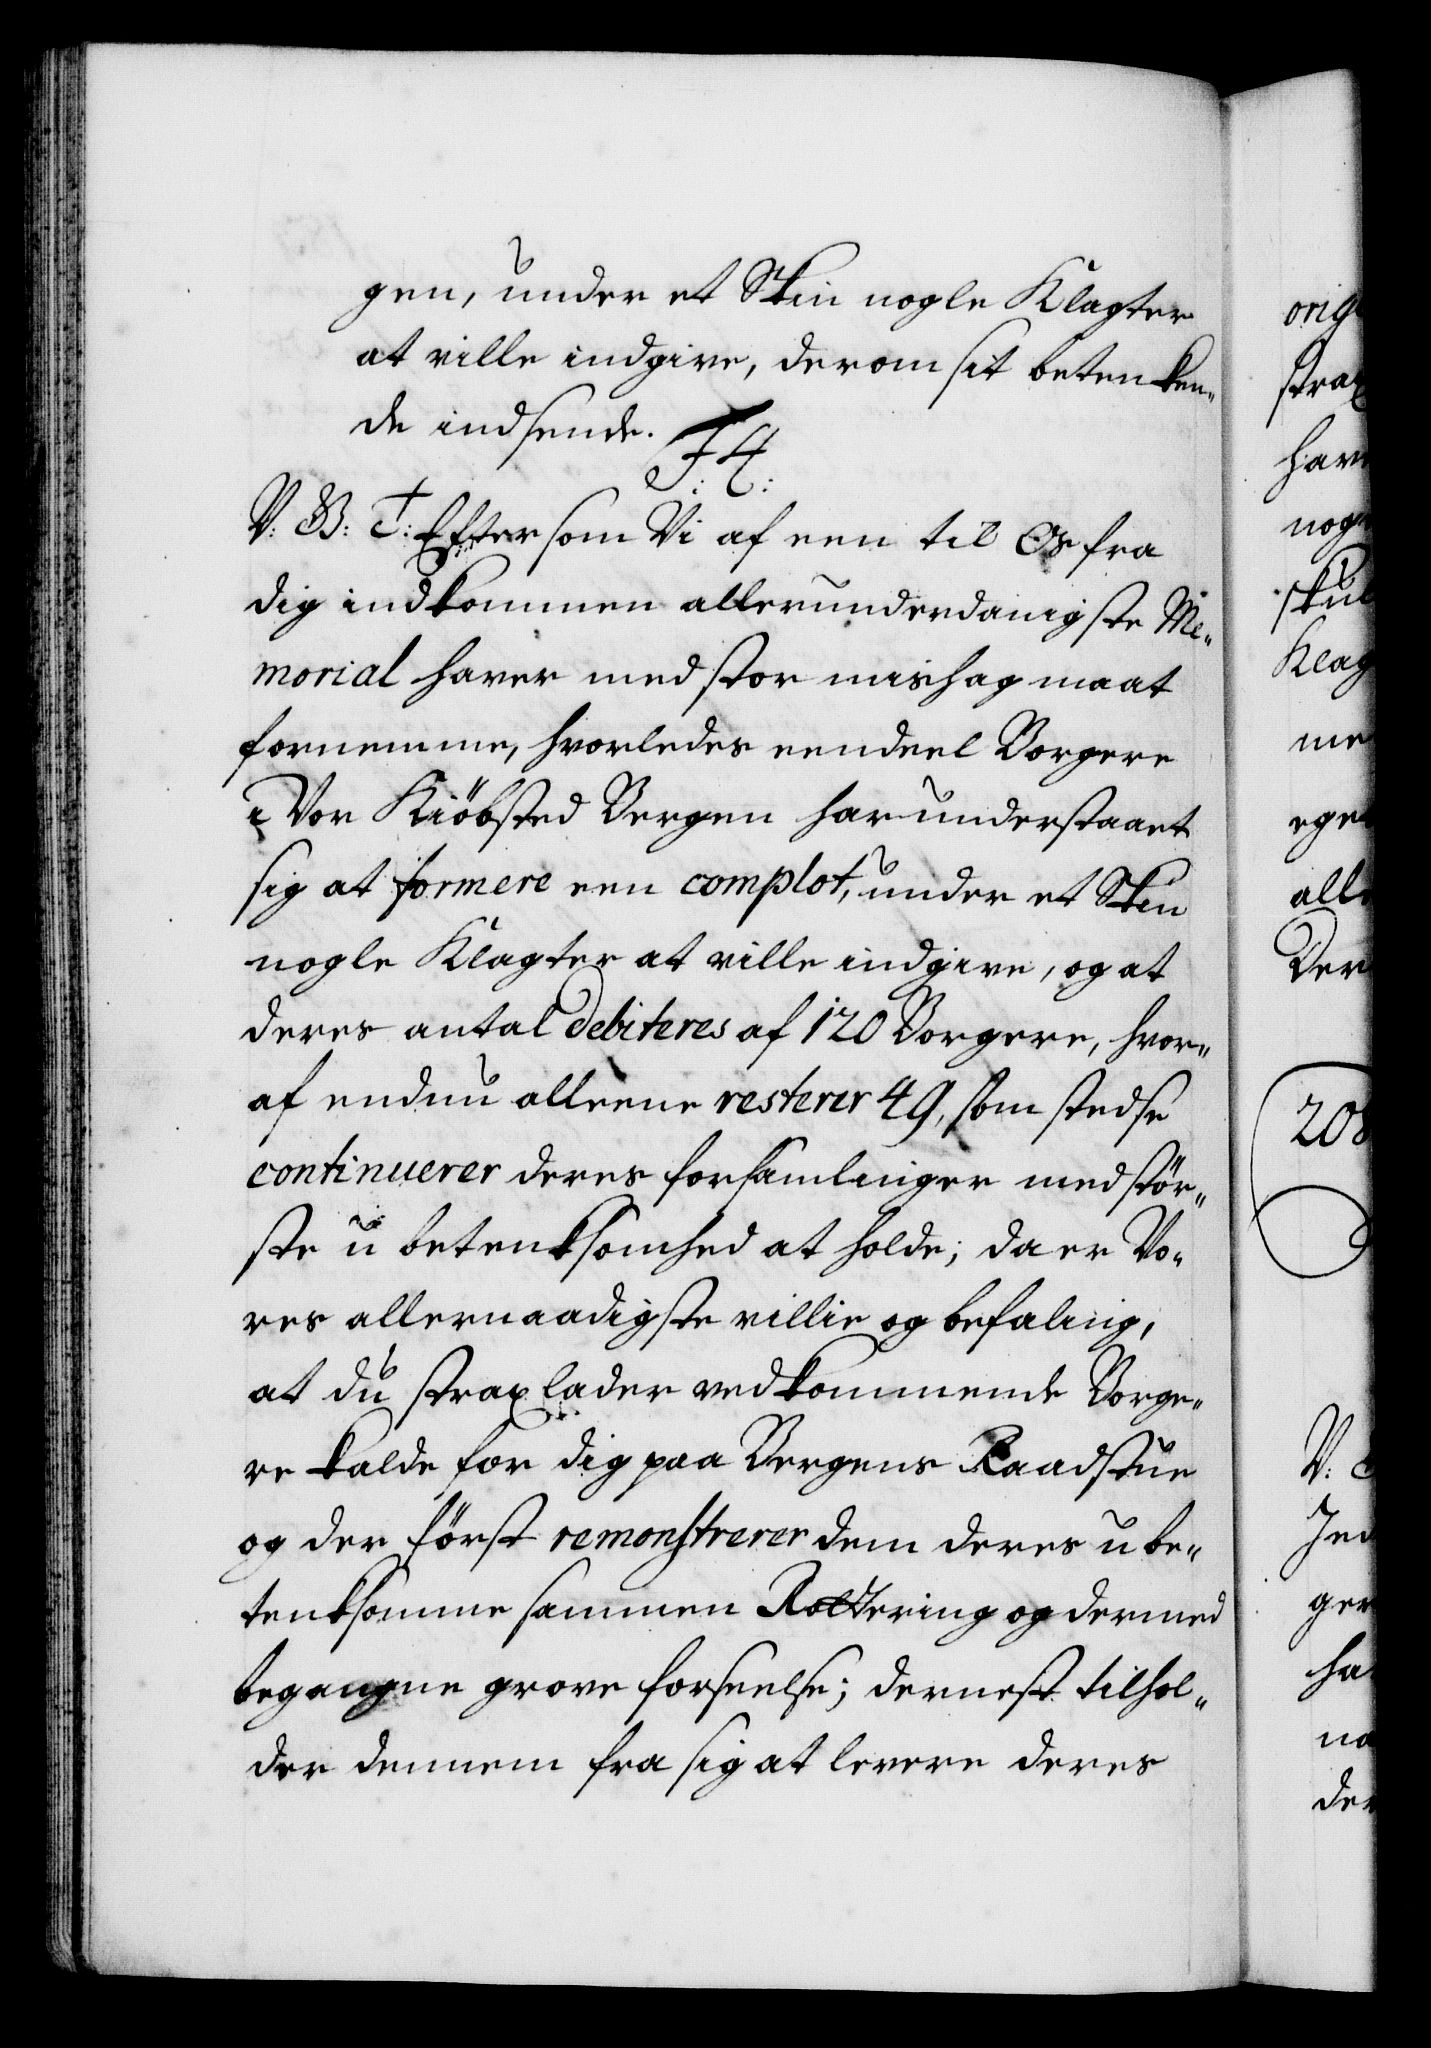 gen, under et Skin nogle Klagter
at ville indgive, derom sit betenken-
de indsende. F. 4.
V: B: T: Eftersom Vi af een til Os fra
dig indkommen allerunderdanigste Me-
morial haver med stor mishag maat
fornemme, hvorledes eendeel Borgere
i Vor Kiöbsted Bergen har understaaet
sig at formere een complot, under et Skin
nogle Klagter at ville indgive, og at
deres antal debiteres af 120 Borgere, hvor-
af endnu alleene resterer 49, som stedse
continuerer deres forsamlinger med stör-
ste u betenksomhed at holde; da er Vo-
res allernaadigste villie og befaling,
at du strax lader vedkommende Borge-
re kalde for dig paa Bergens Raadstue
og der först remonstrerer dem deres u be-
tenksomme sammen Rottering og dermed
begangne grove forseelse; dernest tilhol-
der dennem fra sig at levere deres
strax
nog
Klag
me
alle
Der
208
V:
ger
ha
no
der